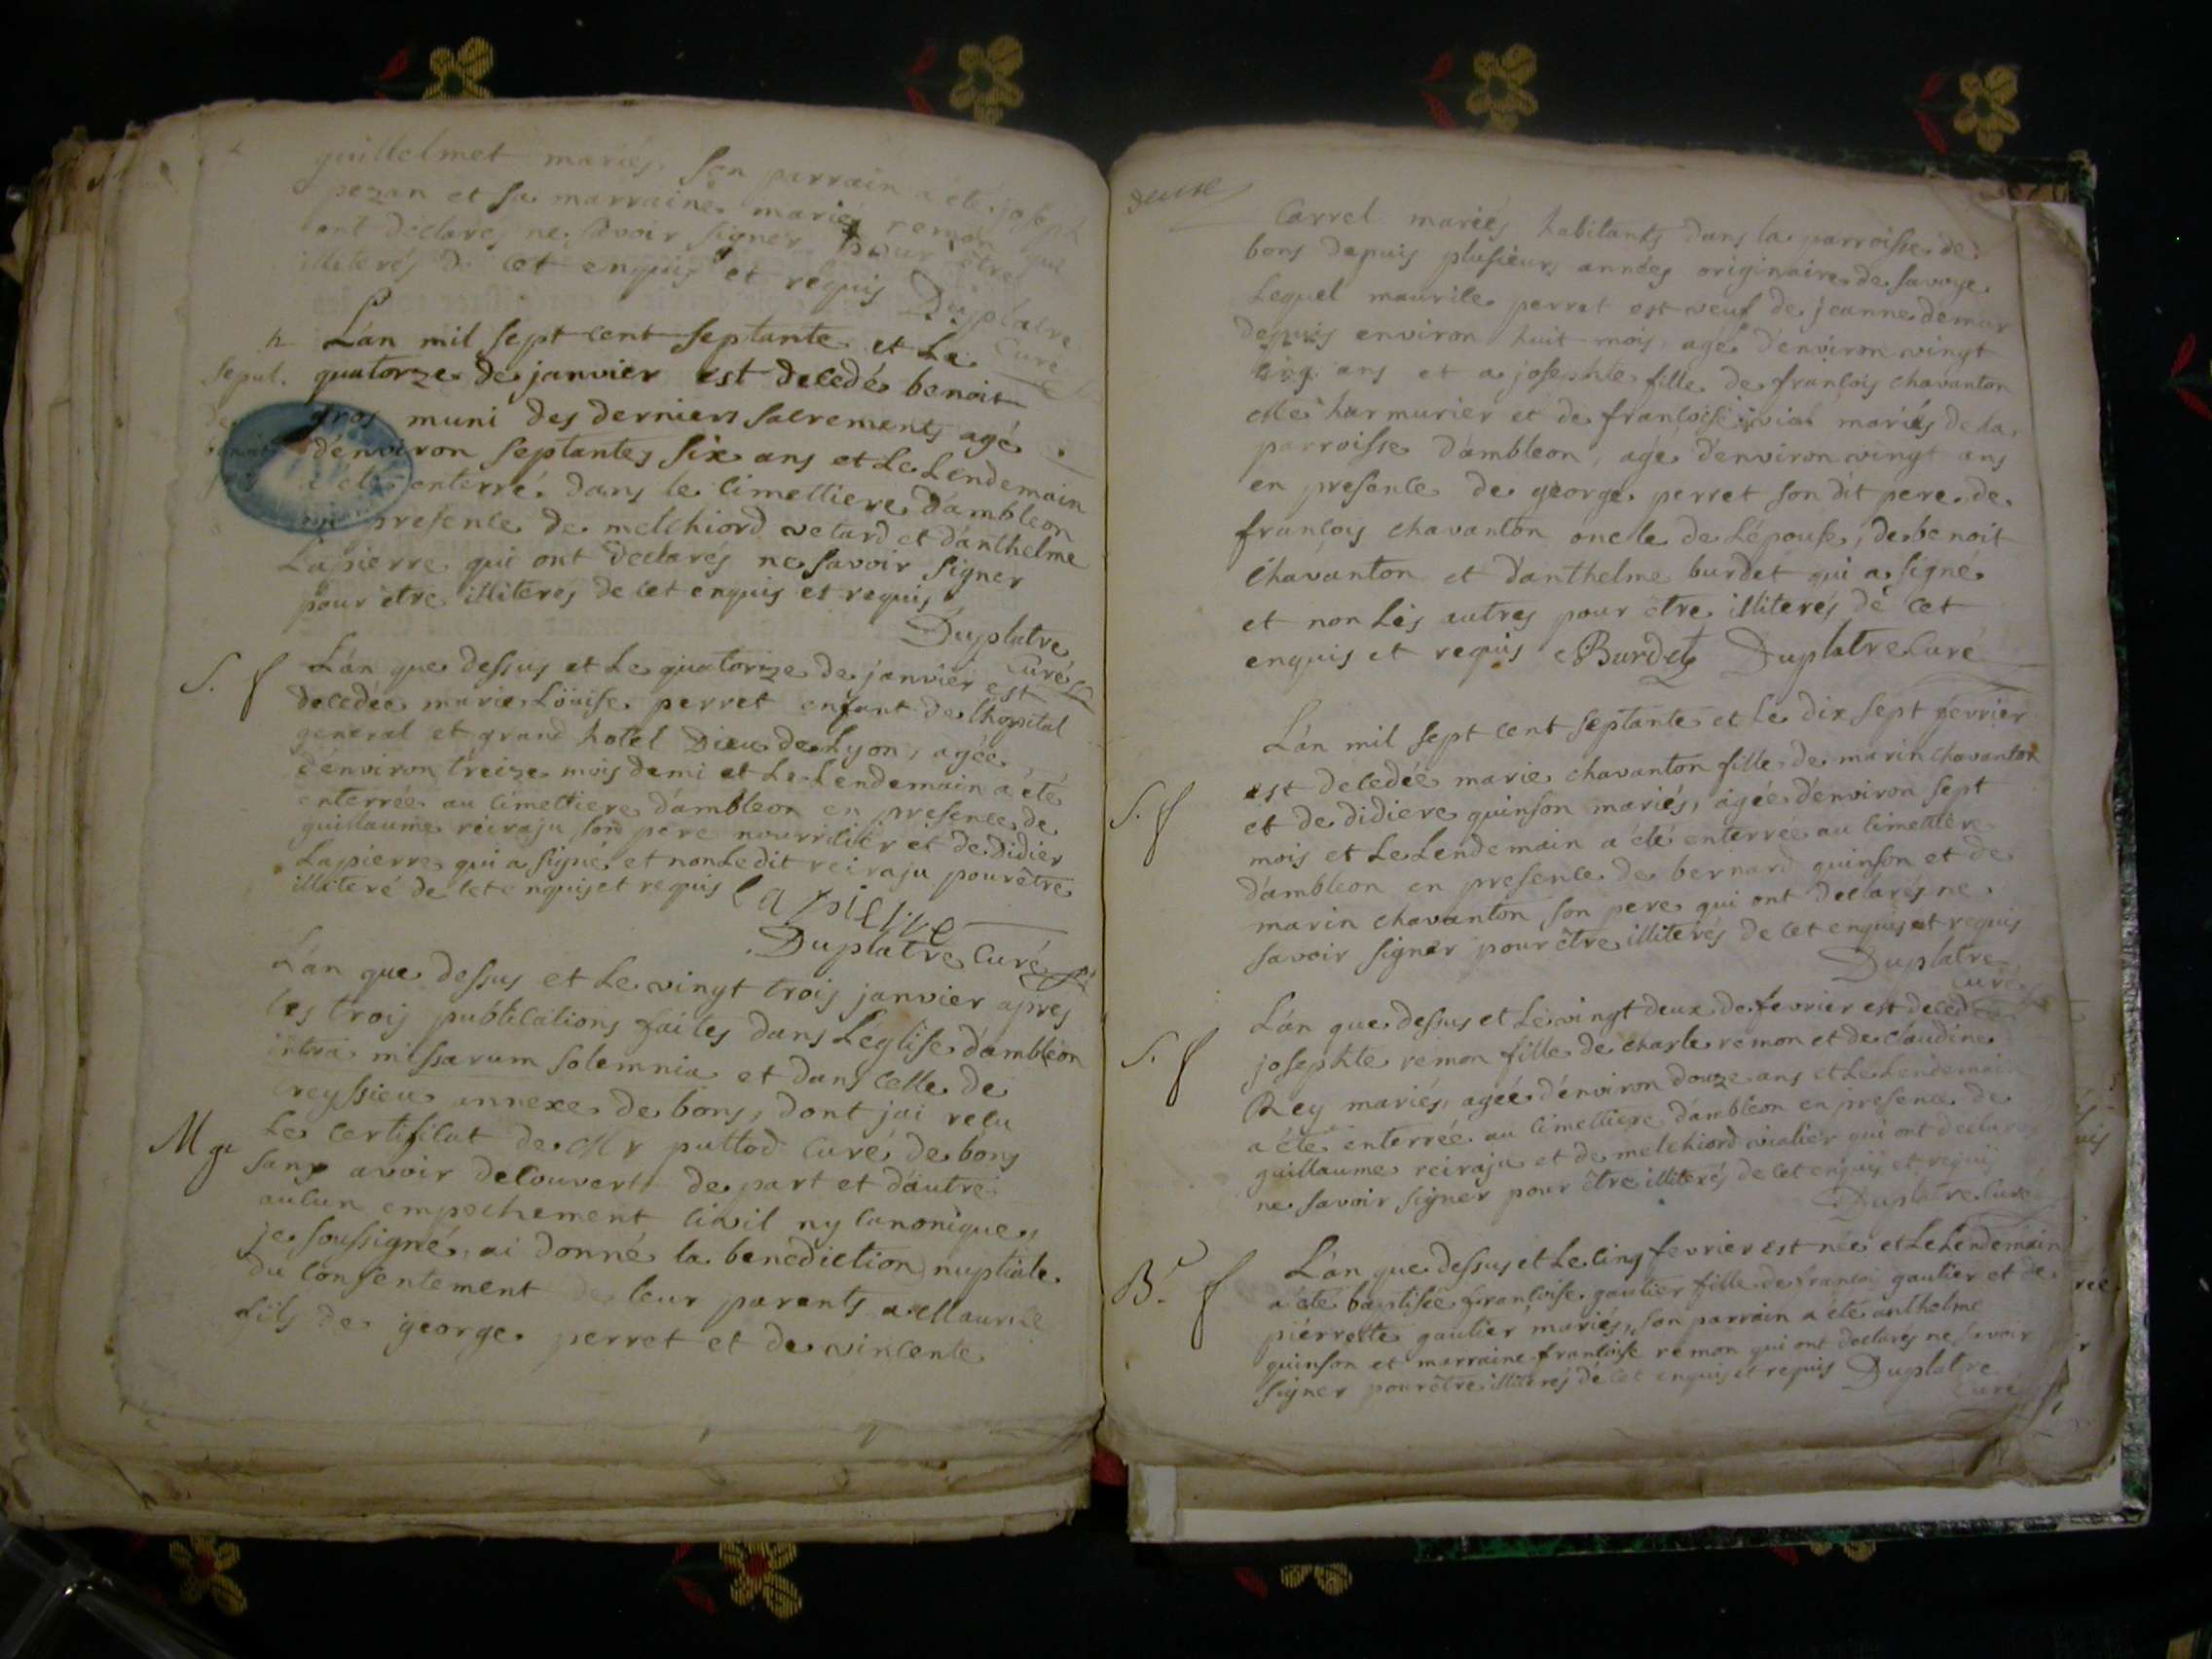 guillelmet mariés, son parrain a été joseph
pezan et sa marraine mariée remon qui
ont déclarés ne savoir signer pour être
illiterés de cet enquis et requis Duplatre
Curé
Lán mil sept cent septante et Le
quatorze de janvier est decedé benoit
gros muni des derniers sacrements agé
d'environ septantes six ans et Le Lendemain
a été enterré dans le cimettiere d'ambleon
en presence de melchiord vetard et d'anthelme
Lapierre qui ont declarés ne savoir signer
pour être illiterés de cet enquis et requis
Duplatre
Curé
Sepul.
de
benoit
gros
S. f
Lán que dessus et Le quatorze de janvier est
decedée marie Löuise perret enfant de l'hopital
general et grand hotel Dieu de Lyon, agée
d'environ treize mois demi et Le Lendemain a été
enterrée au cimettiere d'ambleon en presence de
guillaume reiraju son pere nourricier et de Didier
Lapierre qui a signé et non Le dit reiraju pour être
illiteré de cet enquis et requis lapierre
Duplatre Curé
Lán que dessus et Le vingt trois janvier apres
les trois publications faites dans Léglise d'ambleon
intra missarum solemnia et dans celle de
creyssieu annexe de bons, dont jai recu
Le certificat de Mr puttod curé de bons
Mge
sans avoir decouvert de part et d'autre
aucun empechement civil ny canonique,
je soussigné, ai donné la benediction nuptiale
du consentement de leur parents a Maurice
fils de george perret et de vincente
deuxe
Carrel mariés habitants dans la parroisse de
bons depuis plusieurs années originaire de savoye
Lequel maurile perret est veuf de jeanne demar
depuis environ huit mois, agé d'environ vingt
cinq ans et a josephte fille de francois chavanton
dite harmurier et de francoise vial mariés de la
parroisse d'ambleon, agé d'environ vingt ans
en presence de george perret son dit pere de
francois chavanton oncle de Lépouse, de benoit
Chavanton et d'anthelme burdet qui a signé
et non Les autres pour être illiterés de cet
enquis et requis Burdet Duplatre Curé
Lán mil sept cent septante et Le dix sept fevrier
est decedée marie chavanton fille de marin chavanton
S. f
et de didiere quinson mariés, agée d'environ sept
mois et Le Lendemain a été enterrée au cimettiere
d'ambleon en presence de bernard quinson et de
marin chavanton son pere qui ont declarés ne
savoir signer pour être illiterés de cet enquis et requis
Duplatre
Curé
Lán que dessus et Le vingt deux de fevrier est decedée
S. f
josephte remon fille de charle remon et de claudine
Rey mariés, agée d'environ douze ans et Le Lendemain
a été enterrée au cimettiere d'ambleon en presence de
guillaume reiraju et de melchiord vialier qui ont declarés
ne savoir signer pour être illiterés de cet enquis et requis
Duplatre Curé
Lán que dessus et Le cinq fevrier est née et Le Lendemain
B. f
a été baptisée francoise gautier fille de francoi gautier et de
pierrette gautier mariés, son parrain a été anthelme
quinson et marraine francoise remon qui ont declarés ne savoir
signer pour être illiterés de cet enquis et requis Duplatre
Curé